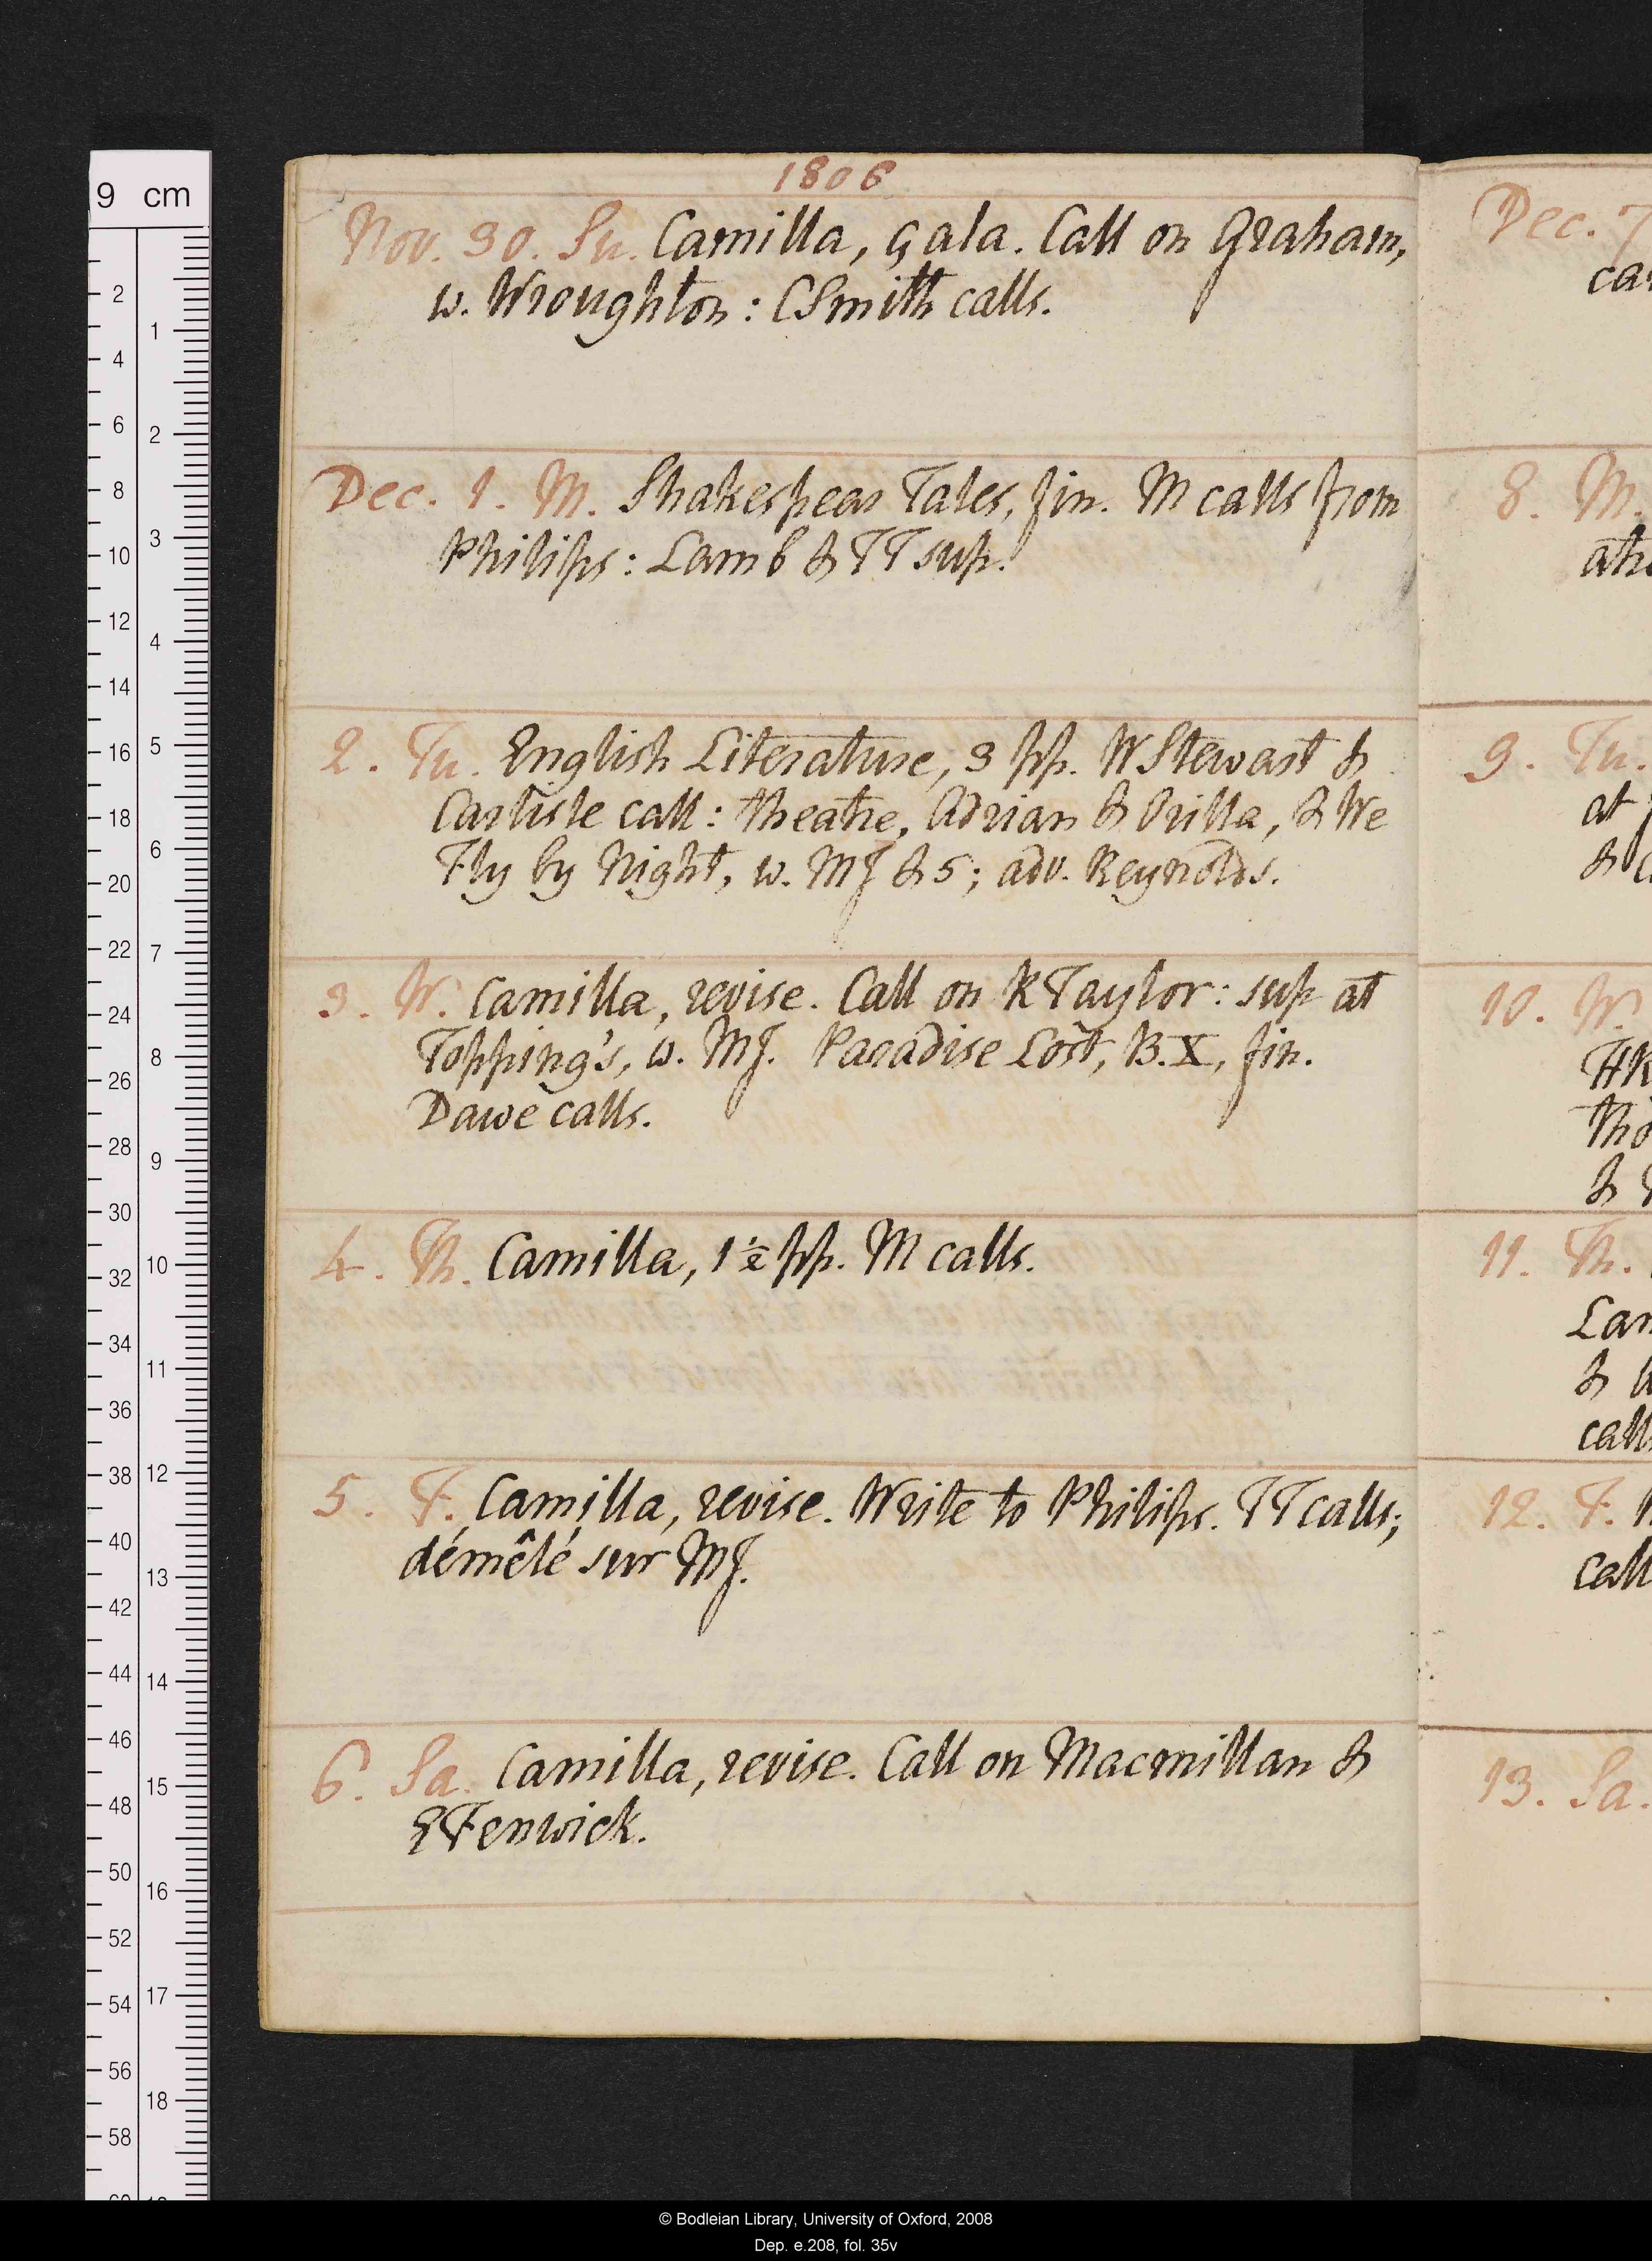 1806
Nov. 30. Su. Camilla, gala. Call on Graham,
w. Wroughton: CSmith calls.
Dec. 1. M. Shakespear Tales, fin. M calls from
Philips: Lamb & TT sup.
2. Tu. English Literature, 3 pp. W Stewart &
Carlisle call: theatre, Adrian & Orilla, & We
Fly by Night, w. MJ & 5; adv. Reynolds.
3. W. Camilla, revise. Call on RTaylor: sup at
Topping's, w. MJ. Paradise Lost, B. X, fin.
Dawe calls.
4. Th. Camilla, 1½ pp. M calls.
5. F. Camilla, revise. Write to Philips. TT calls;
démêlé sur MJ.
6. Sa. Camilla, revise. Call on Macmillan &
EFenwick.
Dec. 7
8. M.
9. Tu.
at
&
10. W.
&
11. Th.
Lam
&
call
12. F.
call
13. Sa.
9 cm
2
4
6
8
10
12
14
16
18
20
22
24
26
28
30
32
34
36
38
40
42
44
46
48
50
52
54
56
58
1
2
3
4
5
6
7
8
9
10
11
12
13
14
15
16
17
18
© Bodleian Library, University of Oxford, 2008
Dep. e.208, fol. 35v